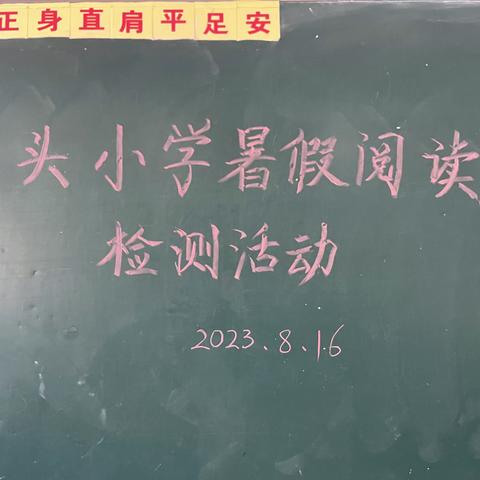 正身直肩平足安
头小学暑假阅读
检测活动
2023.8.16